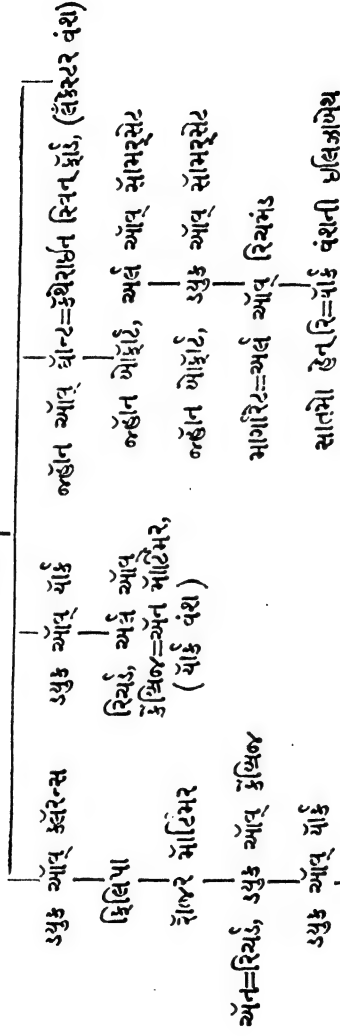 ડ્યુક ઑવ ક્લૅરન્સ
ફિલિપા
રૉજર મૉર્ટિમર
ઍન=રિચર્ડ, ડ્યુક ઑવ કેંબ્રિજ
ડ્યુક ઑવ યૉર્ક
ડ્યુક ઑવ યૉર્ક
રિચર્ડ, અર્લ ઑવ
કેંબ્રિજ=ઍન મૉર્ટિમર,
( યૉર્ક વંશ )
જ્હૉન ઑવ ગૉન્ટ=કૅથેરાઇન સ્વિન ફૉર્ડ, (લૅંકેસ્ટર વંશ)
જ્હૉન બોફૉર્ટ, અર્લ ઑવ સૉમરસેટ
જ્હૉન બોફૉર્ટ, ડ્યુક ઑવ સૉમરસેટ
માર્ગારેટ=અર્લ ઑવ રિચમંડ
સાતમો હેન્રિ=યૉર્ક વંશની ઇલિઝાબેથ